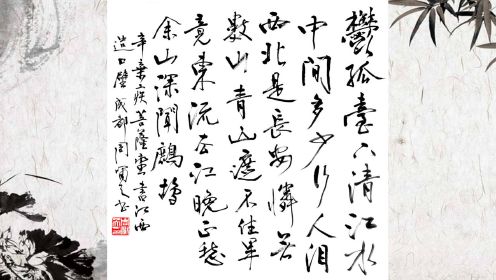 鬱孤臺下清江水
中間多少行人泪
西北是長安憐無
數山青山遮不住畢
竟東流去江晚正愁
余山深聞鷓鴣
辛棄疾菩薩蠻書江西
造口壁成都周